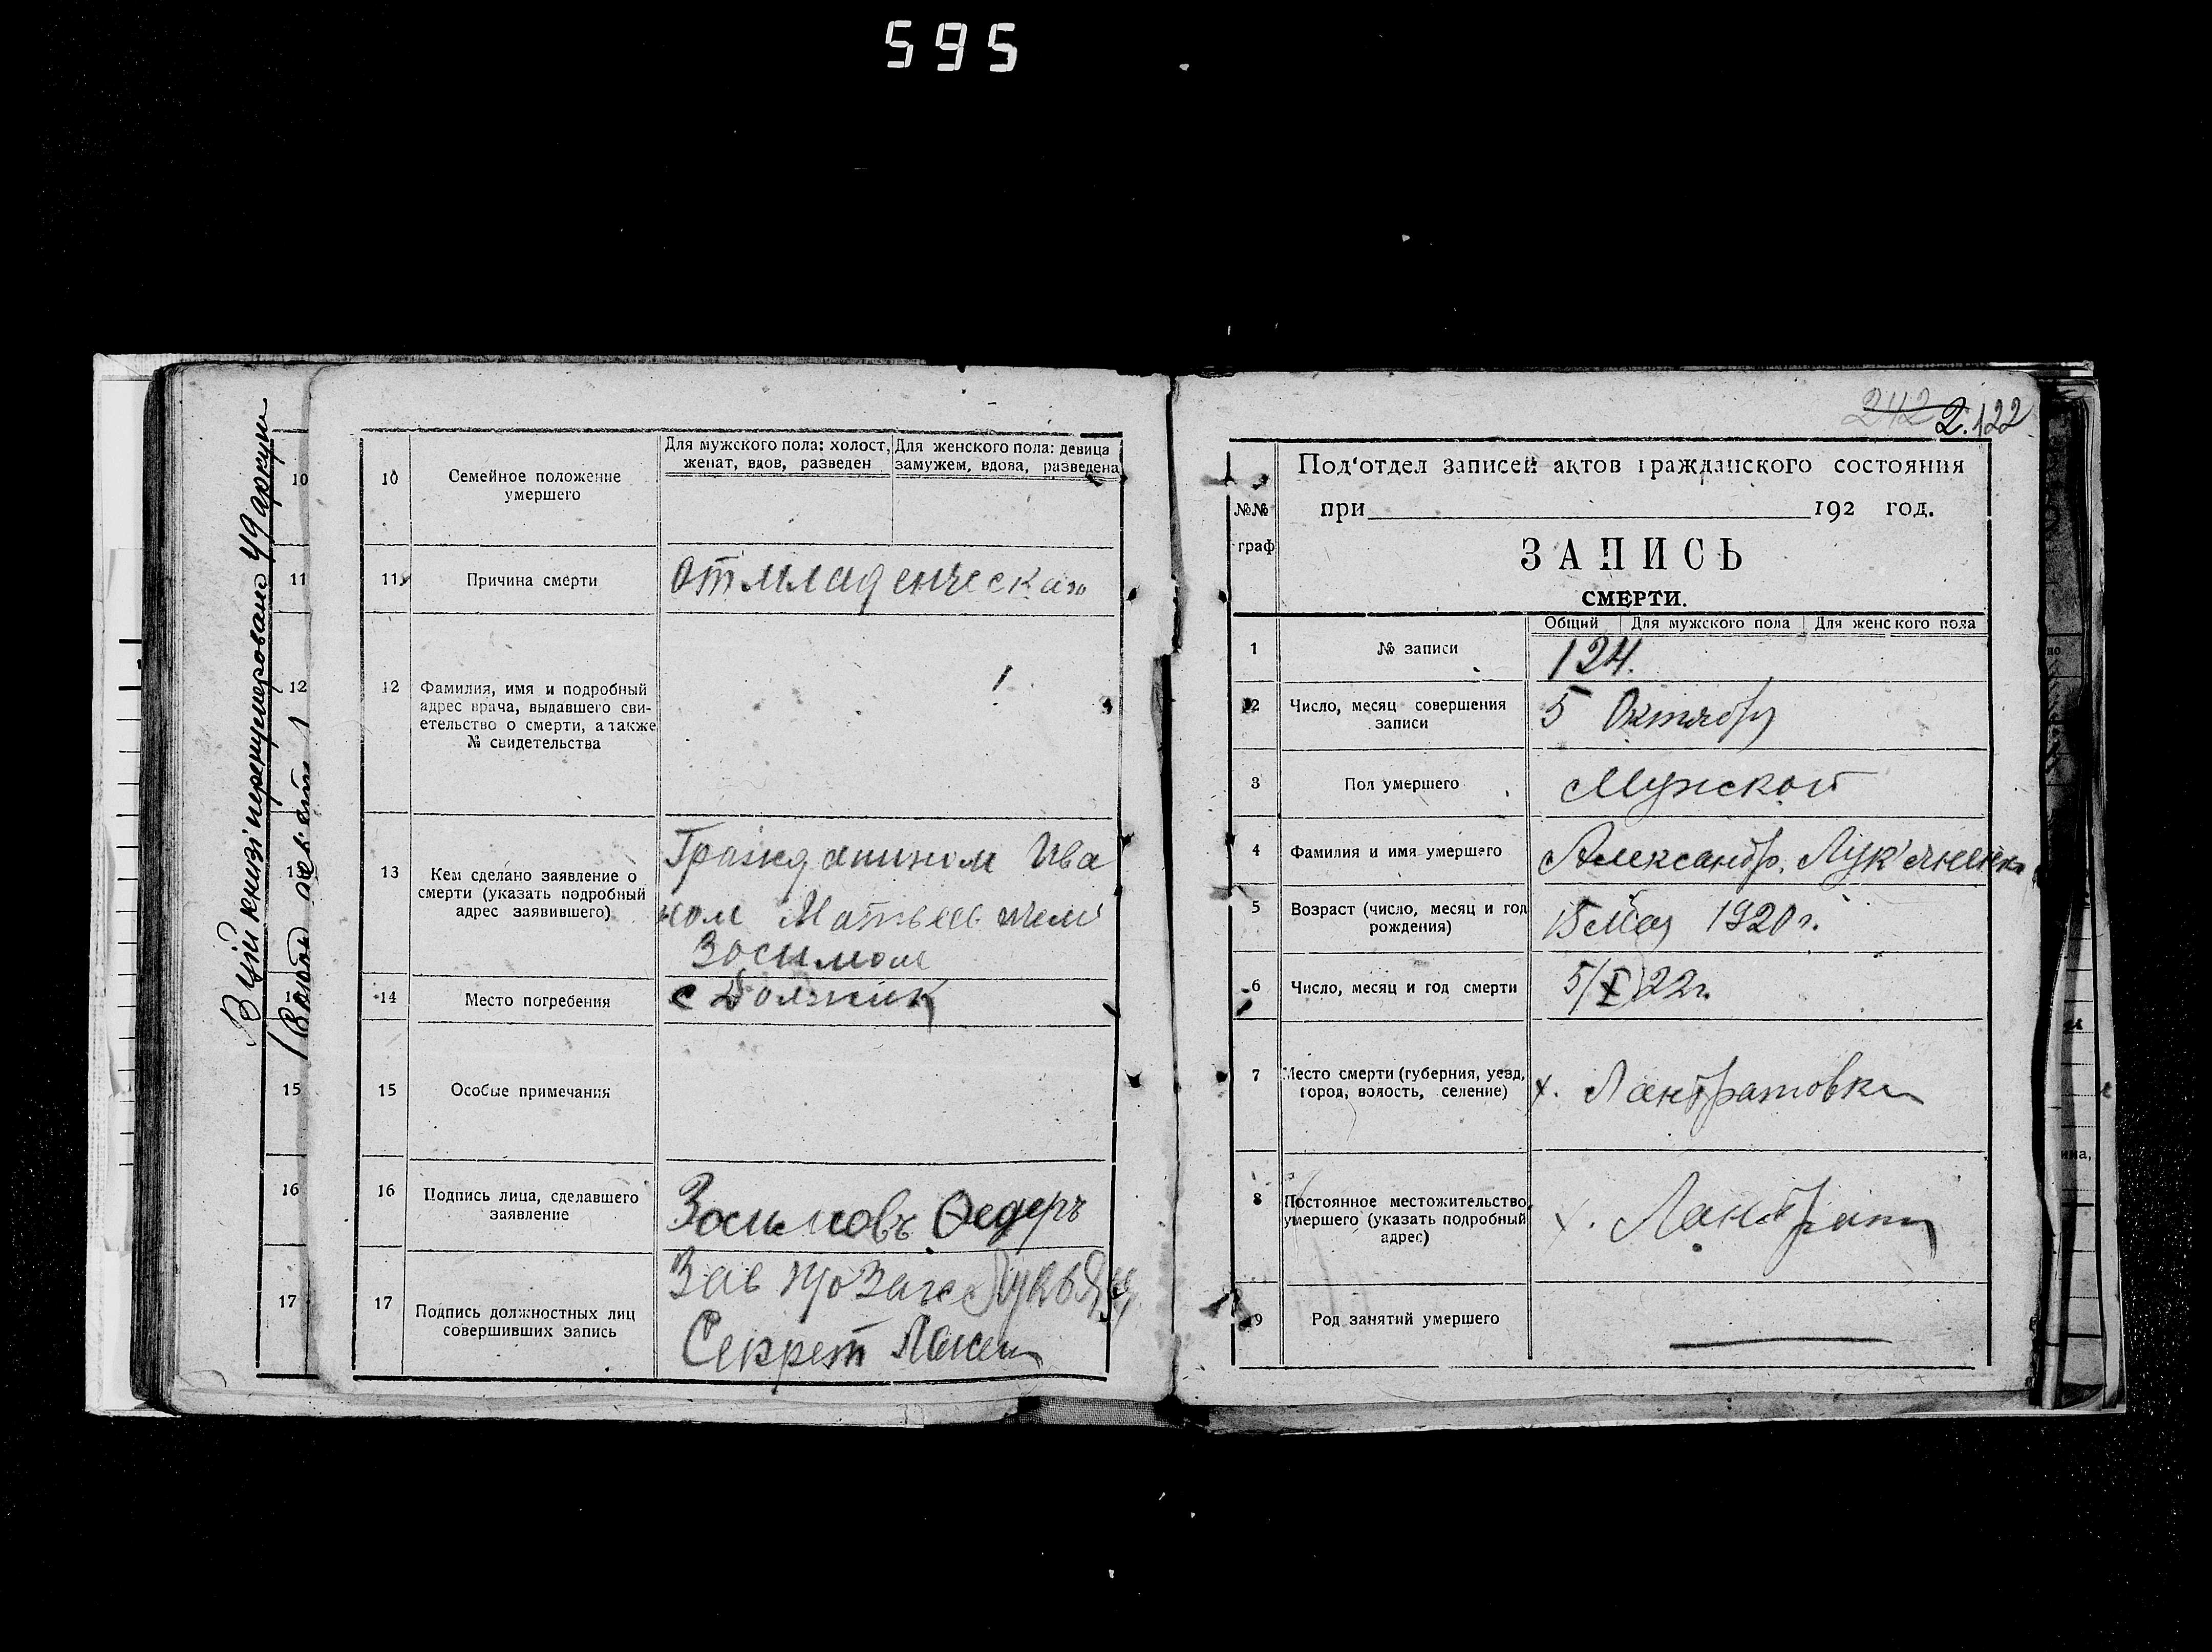 595
В цій книзі перенумеровано 49 аркуш
10
11
12
13
15
16
17
10
Семейное положение
умершего
Для мужского пола: холост,
женат, вдов, разведен
Для женского пола: девица
замужем, вдова, разведена
11
Причина смерти
От младенческаго
12
Фамилия, имя и подробный
адрес врача, выдавшего сви-
етельство о смерти, а также
№ свидетельства
13
Кем сделано заявление о
смерти (указать подробный
адрес заявившего)
Гражданином Ива
ном Матвеевичем
Зосимом
14
Место погребения
с Должик
15
Особые примечания
16
Подпись лица, сделавшего
заявление
Зосимовъ Ѳедеръ
17
Подпись должностных лиц
совершивших запись
Зав
Секрет
242 2.122
№№
граф
Под'отдел записей актов гражданского состояния
при 192 год.
ЗАПИСЬ
СМЕРТИ.
Общий Для мужского пола Для женского пола
1
№ записи
124.
2
Число, месяц совершения
записи
5 Октября
3
Пол умершего
Мужской
4
Фамилия и имя умершего
Александр. Лук'яненко
5
Возраст (число, месяц и год
рождения)
15 Мая 1920 г.
6
Число, месяц и год смерти
5/X 22 г.
7
Место смерти (губерния, уезд,
город, волость, селение)
х. Лантратовка
8
Постоянное местожительство
умершего (указать подробный
адрес)
х. Лантрат
9
Род занятий умершего